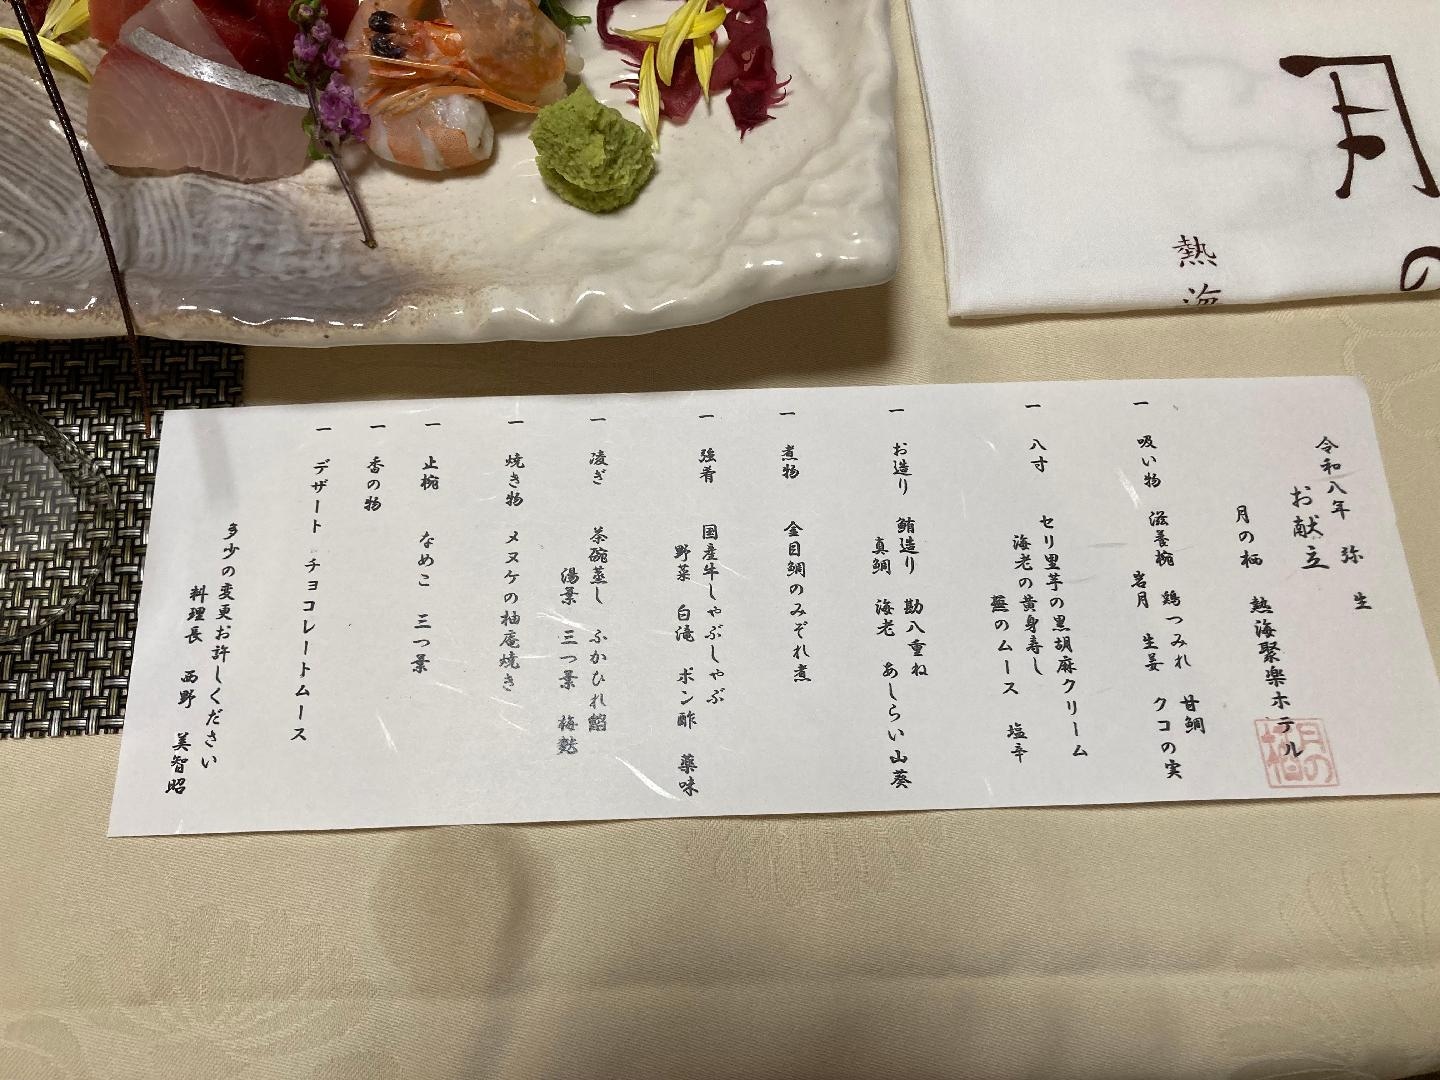 令和八年 弥生
お献立
月の栖 熱海聚楽ホテル
月の栖
一 吸い物 滋養椀 鶏つみれ 甘鯛
岩月 生姜 クコの実
一 八寸 セリ里芋の黒胡麻クリーム
海老の黄身寿し
蕪のムース 塩辛
一 お造り 鮪造り 勘八重ね
真鯛 海老 あしらい山葵
一 煮物 金目鯛のみぞれ煮
一 強肴 国産牛しゃぶしゃぶ
野菜 白滝 ポン酢 薬味
一 凌ぎ 茶碗蒸し ふかひれ餡
湯葉 三つ葉 梅麩
一 焼き物 メヌケの柚庵焼き
一 止椀 なめこ 三つ葉
一 香の物
一 デザート チョコレートムース
多少の変更お許しください
料理長 西野 美智昭
月の
熱海